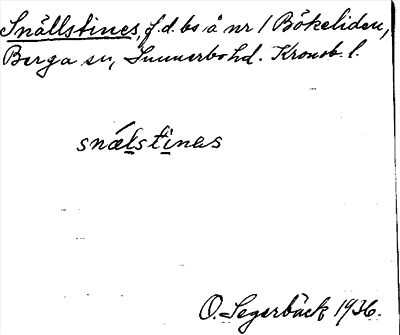 Snällstines, f.d. bs å nr 1 Bökeliden,
Berga sn, Sunnerbo hd. Kronob. l.
snælstinas
O. Segerbäck 1936.